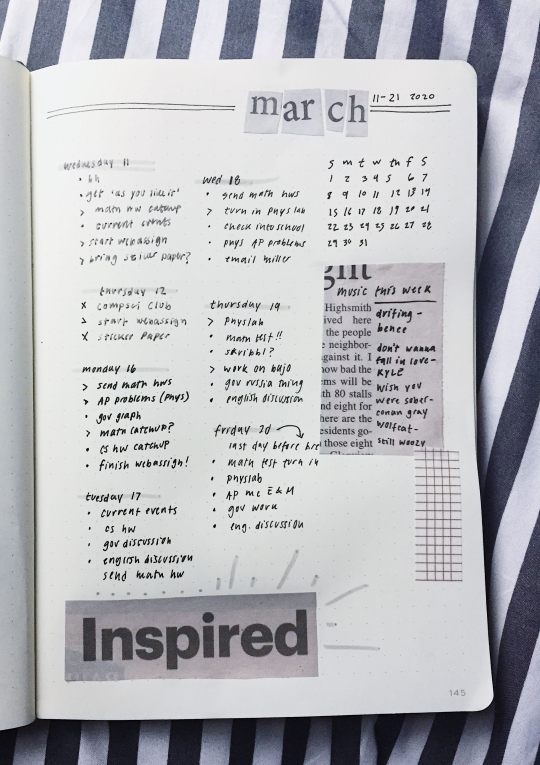 march 11-21 2020
wednesday 11
• bh
• get 'as you like it'
> math hw catchup
• current events
> start webassign
> bring sticker paper?
thursday 12
x compsci club
> start webassign
x sticker paper
monday 16
> send math hws
> AP problems (phys)
• gov graph
> math catchup?
• cs hw catchup
• finish webassign!
tuesday 17
• current events
• cs hw
• gov discussion
• english discussion
send math hw
wed 18
• send math hws
> turn in phys lab
• check into school
• phys AP problems
• email miller
thursday 19
> physlab
• math test!!
• skribbl?
> work on bujo
• gov russia thing
• english discussion
friday 20
last day before bre
• math test turn in
• physlab
• AP mc E & M
• gov work
• eng. discussion
S m t w th f S
1 2 3 4 5 6 7
8 9 10 11 12 13 14
15 16 17 18 19 20 21
22 23 24 25 26 27 28
29 30 31
ght
music this week
Highsmith
ived here
the people
neighbor-
gainst it. I
now bad the
ems will be
th 80 stalls
nd eight for
here are the
esidents go-
those eight
drifting -
bence
don't wanna
fall in love -
KYLE
wish you
were sober -
conan gray
wolfcat -
still woozy
Inspired
145